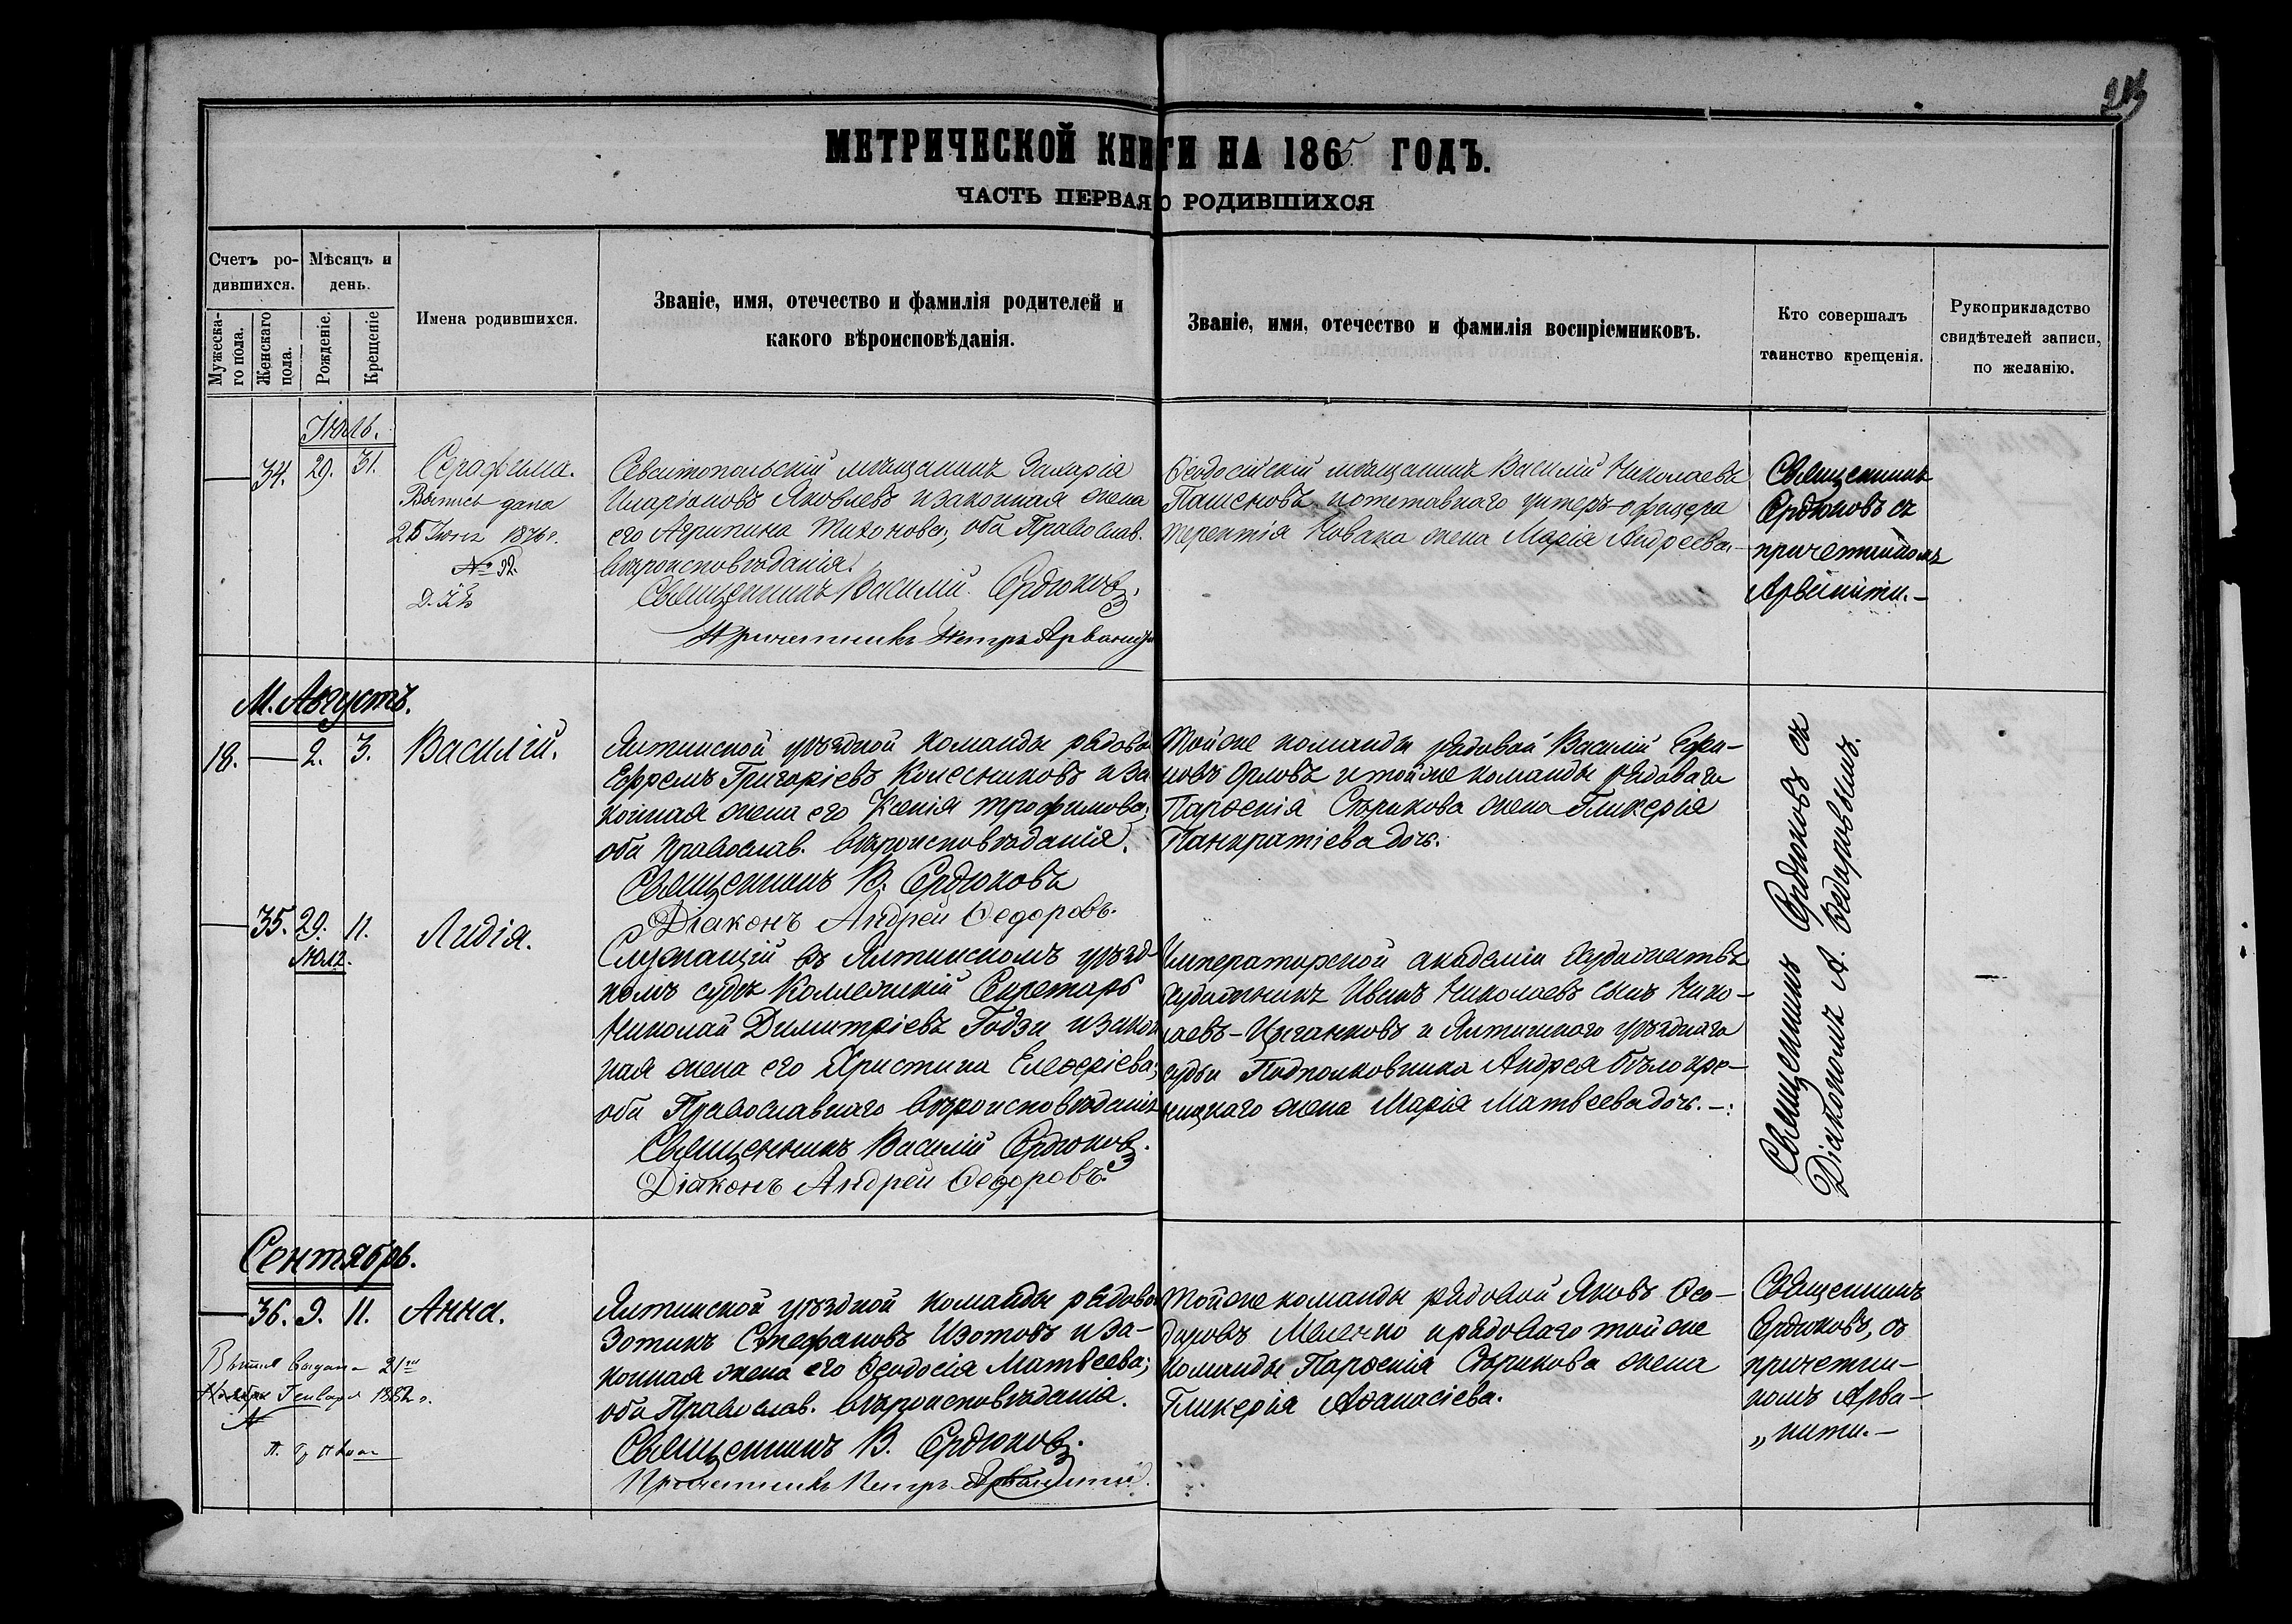 МЕТРИЧЕСКОЙ КНИГИ НА 1865 ГОДЪ.
ЧАСТЬ ПЕРВАЯ О РОДИВШИХСЯ
Счетъ ро-
дившихся.
Мужеска-
го пола.
Женскаго
пола.
Мѣсяцъ и
день.
Рожденіе.
Крещеніе
Имена родившихся.
Званіе, имя, отечество и фамилія родителей и
какого вѣроисповѣданія.
Званіе, имя, отечество и фамилія воспріемниковъ.
Кто совершалъ
таинство крещенія.
Рукоприкладство
свидѣтелей записи,
по желанію.
Іюль.
34. 29. 31.
Серафима.
Выпись дана
25 Іюня 1876 г.
№ 92.
Севастопольскій мѣщанинъ Захарія
Иларіоновъ Яковлевъ и законная жена
его Агрипина Тихонова, оба Православ.
вѣроисповѣданія.
Священникъ Василій Сердюковъ.
Причетникъ Петръ Арванити
Ѳеодосійскій мѣщанинъ Василій Николаевъ
Пашенковъ, и отставнаго унтеръ-офицера
Терентія Новака жена Марія Андреева.
Священникъ
Сердюковъ съ
причетникомъ
Арванити.-
М. Августъ.
18. — 2. 3.
Василій.
Ялтинской уѣздной команды рядовой
Ефремъ Григоріевъ Колесниковъ и за-
конная жена его Ксенія Трофимова,
оба Православ. вѣроисповѣданія.
Священникъ В. Сердюковъ
Діаконъ Андрей Ѳедоровъ.
Той же команды рядовой Василій
Орловъ и той же команды рядоваго
Парѳенія Сѣрикова жена Гликерія
Панкратіева дочь.
Священникъ Сердюковъ съ
Діакономъ А. Ѳедоровымъ.
35. 29. 11.
Іюля.
Лидія.
Служащій въ Ялтинскомъ уѣзд-
номъ судѣ Коллежскій Секретарь
Николай Димитріевъ Годзи и закон
ная жена его Христина Елеѳеріева;
оба Православнаго вѣроисповѣданія
Священникъ Василій Сердюковъ.
Діаконъ Андрей Ѳедоровъ.
Императорской академіи художествъ
художникъ Иванъ Николаевъ сынъ Нико-
лаевъ-Цыганковъ и Ялтинского уѣзднаго
судьи Подполковника Андрея Бѣлокре-
ницкаго жена Марія Матвеева дочь.-:
Сентябрь.
36. 9. 11.
Анна.
Выпись выдана 21го
Генваря 1882 г.
№
Ялтинской уѣздной команды рядовой
Зотикъ Стефановъ Изотовъ и за-
конная жена его Ѳеодосія Матвеева;
оба Православ. вѣроисповѣданія.
Священникъ В. Сердюковъ.
Причетникъ Петръ Арванити.
Той же команды рядовой Яковъ Ѳео-
доровъ Меленко и рядоваго той же
команды Парѳенія Сѣрикова жена
Гликерія Аѳанасіева.
Священникъ
Сердюковъ, съ
причетни-
комъ Арва-
„нити.-